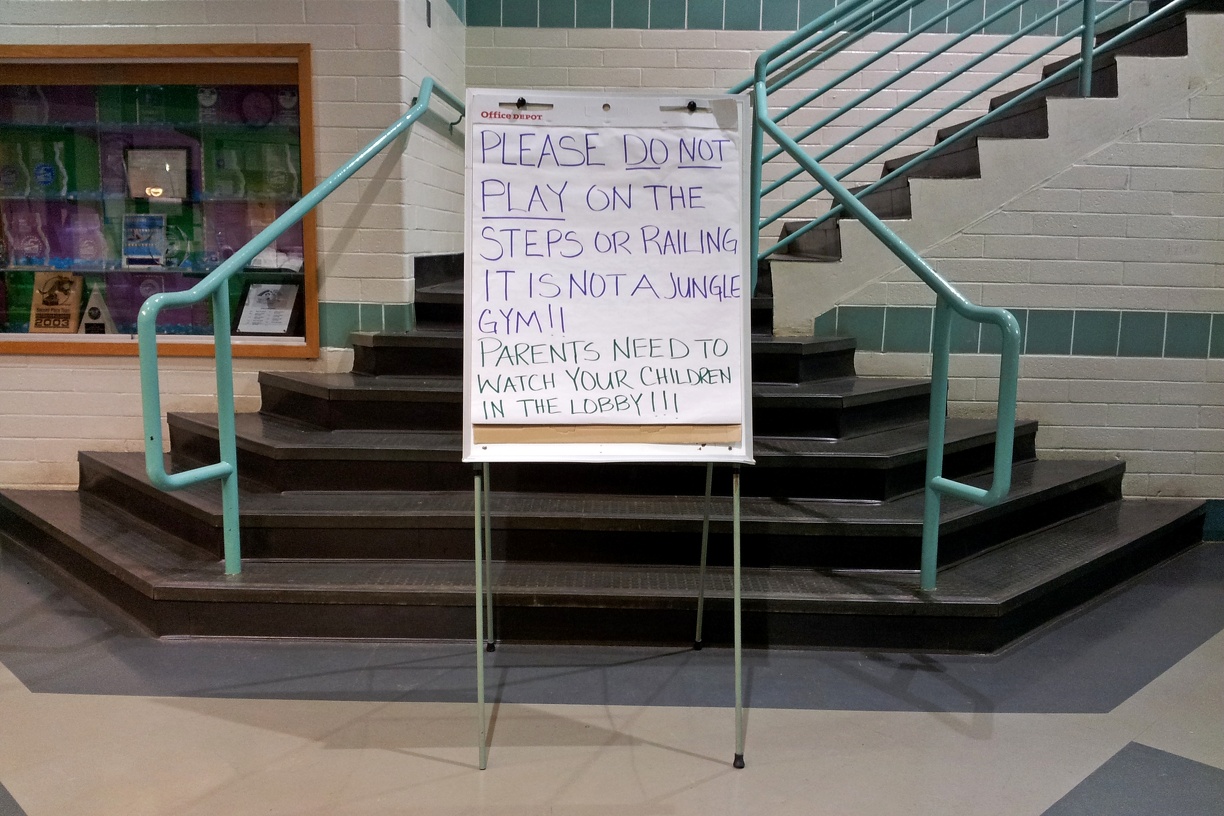 Office DEPOT
PLEASE DO NOT
PLAY ON THE
STEPS OR RAILING
IT IS NOT A JUNGLE
GYM!!
PARENTS NEED TO
WATCH YOUR CHILDREN
IN THE LOBBY!!!
2003